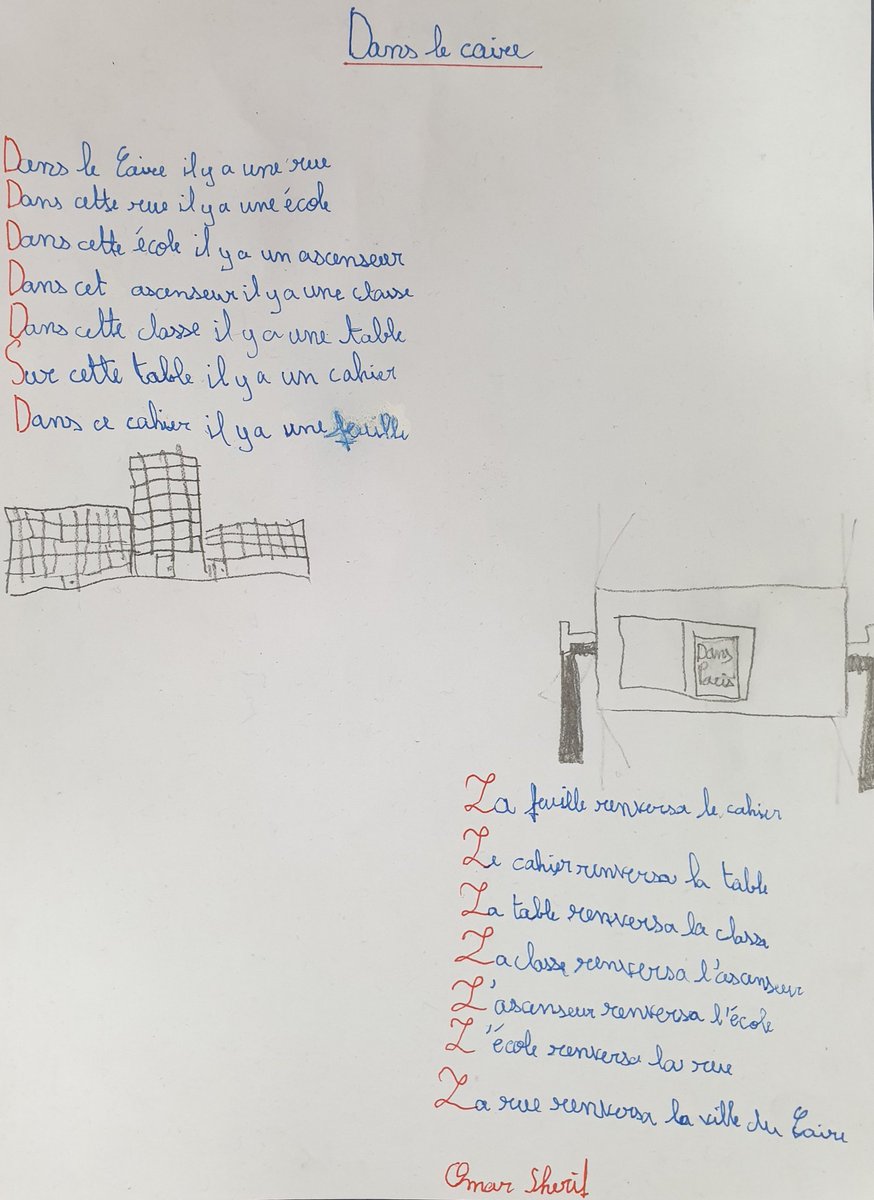 Dans le caire
Dans le Caire il y a une rue
Dans cette rue il y a une école
Dans cette école il y a un ascenseur
Dans cet ascenseur il y a une classe
Dans cette classe il y a une table
Sur cette table il y a un cahier
Dans ce cahier il y a une feuille
Dans
Paris
La feuille renversa le cahier
Le cahier renversa la table
La table renversa la classe
La classe renversa l'asanseur
L'asanseur renversa l'école
L'école renversa la rue
La rue renversa la ville du Caire
Omar Sherif